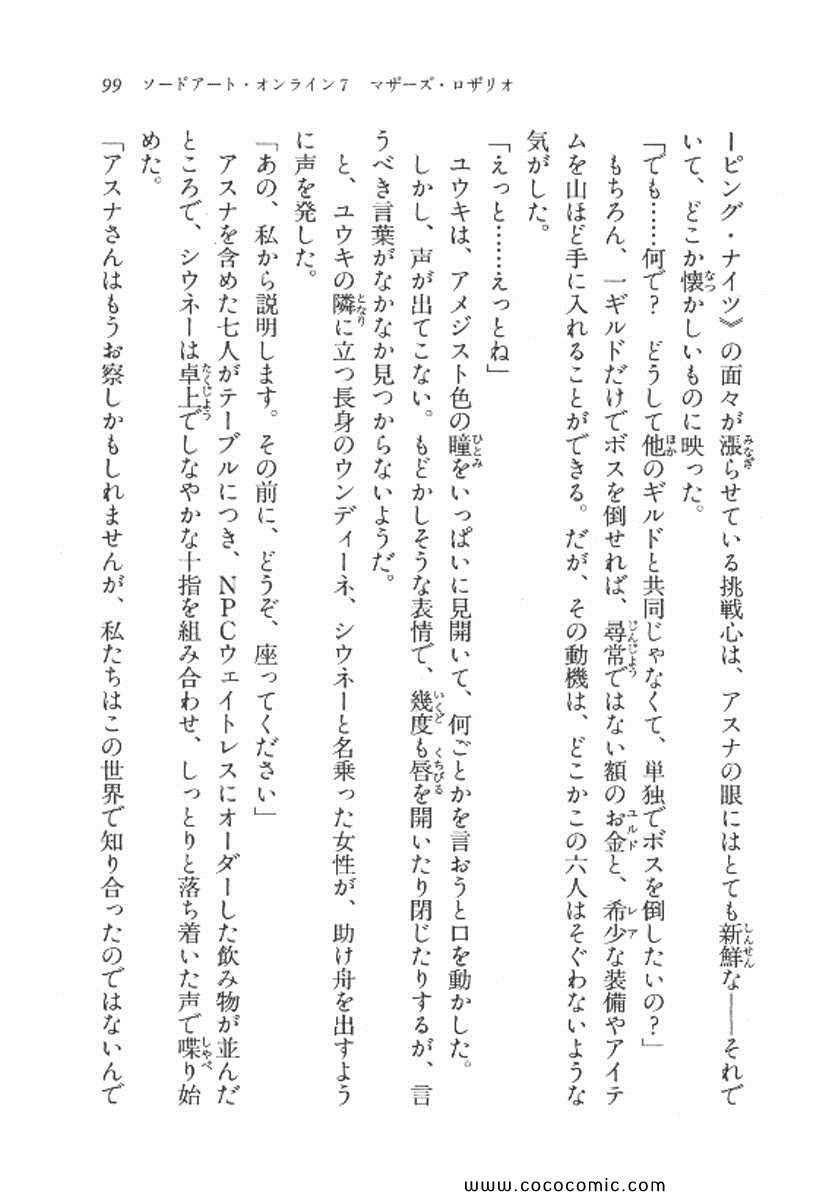 99　ソードアート・オンライン7　マザーズ・ロザリオ
ーピング・ナイツ》の面々が漲らせている挑戦心は、アスナの眼にはとても新鮮な――それで
いて、どこか懐かしいものに映った。
「でも……何で？　どうして他のギルドと共同じゃなくて、単独でボスを倒したいの？」
　もちろん、一ギルドだけでボスを倒せれば、尋常ではない額のお金と、希少な装備やアイテ
ムを山ほど手に入れることができる。だが、その動機は、どこかこの六人はそぐわないような
気がした。
「えっと……えっとね」
　ユウキは、アメジスト色の瞳をいっぱいに見開いて、何ごとかを言おうと口を動かした。
しかし、声が出てこない。もどかしそうな表情で、幾度も唇を開いたり閉じたりするが、言
うべき言葉がなかなか見つからないようだ。
　と、ユウキの隣に立つ長身のウンディーネ、シウネーと名乗った女性が、助け舟を出すよう
に声を発した。
「あの、私から説明します。その前に、どうぞ、座ってください」
　アスナを含めた七人がテーブルにつき、NPCウェイトレスにオーダーした飲み物が並んだ
ところで、シウネーは卓上でしなやかな十指を組み合わせ、しっとりと落ち着いた声で喋り始
めた。
「アスナさんはもうお察しかもしれませんが、私たちはこの世界で知り合ったのではないんで
www.cococomic.com